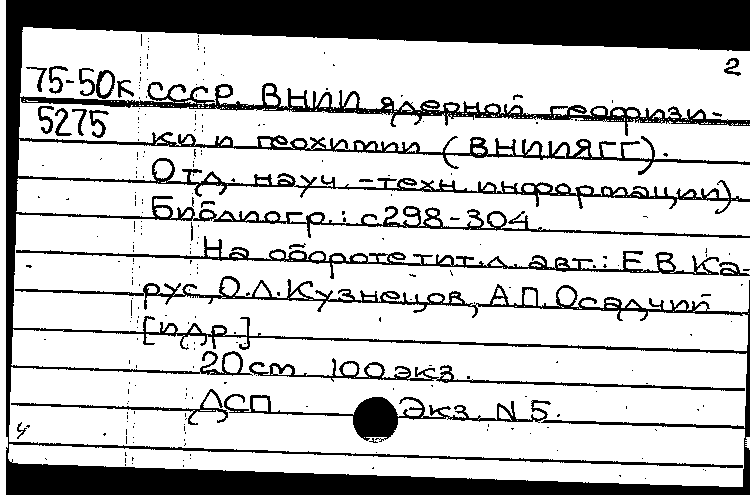 2
75-50к СССР. ВНИИ ядерной геофизи-
5275 ки и геохимии (ВНИИЯГГ).
Отд. науч.-техн. информации).
Библиогр.: с298-304.
На обороте тит. л. авт.: Е.В. Ка-
рус, О.Л. Кузнецов, А.П. Осадчий
[и др.].
20 см. 100 экз.
ДСП Экз. N 5.